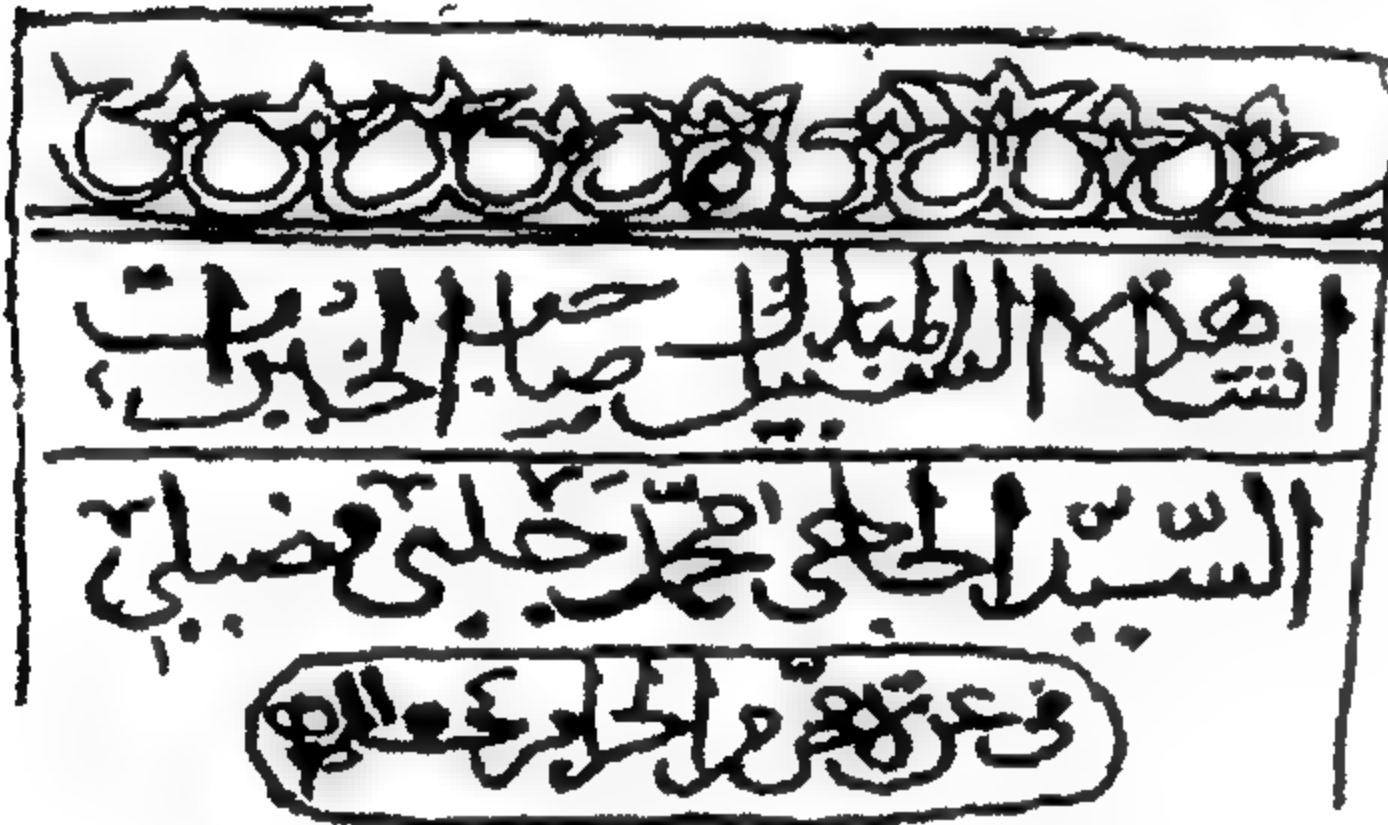 انشا هذا السبيل صاحب الخيرات
السيد الحاجي محمد جلبي
في غرة محرم الحرام